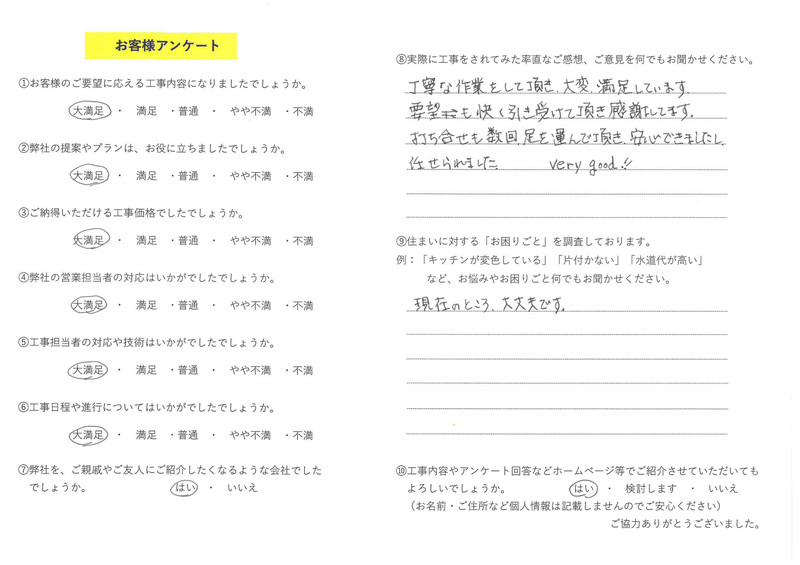 お客様アンケート
①お客様のご要望に応える工事内容になりましたでしょうか。
大満足 ・ 満足 ・普通 ・ やや不満 ・不満
②弊社の提案やプランは、お役に立ちましたでしょうか。
大満足 ・ 満足 ・普通 ・ やや不満 ・不満
③ご納得いただける工事価格でしたでしょうか。
大満足 ・ 満足 ・普通 ・ やや不満 ・不満
④弊社の営業担当者の対応はいかがでしたでしょうか。
大満足 ・ 満足 ・普通 ・ やや不満 ・不満
⑤工事担当者の対応や技術はいかがでしたでしょうか。
大満足 ・ 満足 ・普通 ・ やや不満 ・不満
⑥工事日程や進行についてはいかがでしたでしょうか。
大満足 ・ 満足 ・普通 ・ やや不満 ・不満
⑦弊社を、ご親戚やご友人にご紹介したくなるような会社でした
でしょうか。 はい ・ いいえ
⑧実際に工事をされてみた率直なご感想、ご意見を何でもお聞かせください。
丁寧な作業をして頂き、大変、満足しています。
要望も快く引き受けて頂き感謝してます。
打ち合せも数回、足を運んで頂き、安心できましたし、
任せられました。 very good!!
⑨住まいに対する「お困りごと」を調査しております。
例：「キッチンが変色している」「片付かない」「水道代が高い」
など、お悩みやお困りごと何でもお聞かせください。
現在のところ、大丈夫です。
⑩工事内容やアンケート回答などホームページ等でご紹介させていただいても
よろしいでしょうか。 はい ・ 検討します ・ いいえ
（お名前・ご住所など個人情報は記載しませんのでご安心ください）
ご協力ありがとうございました。